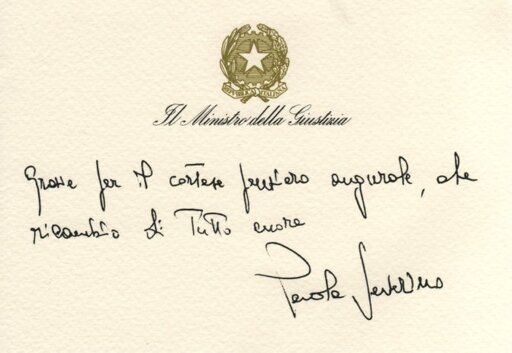 REPVBBLICA ITALIANA
Il Ministro della Giustizia
Grazie per il cortese pensiero augurale, che
ricambio di tutto cuore
Paola Severino